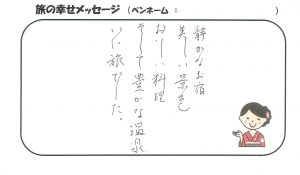 旅の幸せメッセージ (ペンネーム : )
静かなお宿
美しい景色
おいしい料理
そして豊かな温泉
いい旅でした。